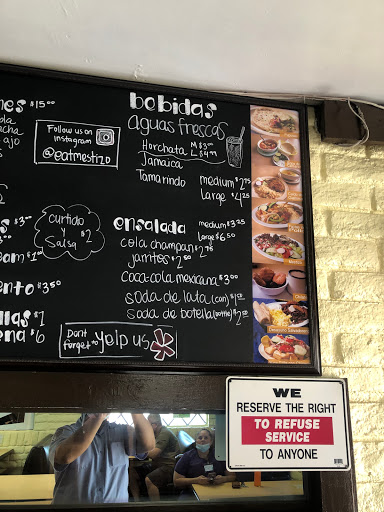 nes $15.00
ola
ncha
ajo
os
Follow us on
instagram
@eatmest120
bebidas
aguas frescas
Horchata M $3.00
Jamaica L $4.99
Tamarindo
medium $2.75
large $4.25
s $3.00
Curtido
y
Salsa $2
eam $2
ento $3.50
llas $1
ena $6
ensalada medium $3.25
large $6.50
cola champan $2.75
jarritos $2.50
coca-cola mexicana $3.00
soda de lata (can) $1.50
soda de botella (bottle) $2.50
Dont
forget to yelp us
WE
RESERVE THE RIGHT
TO REFUSE
SERVICE
TO ANYONE